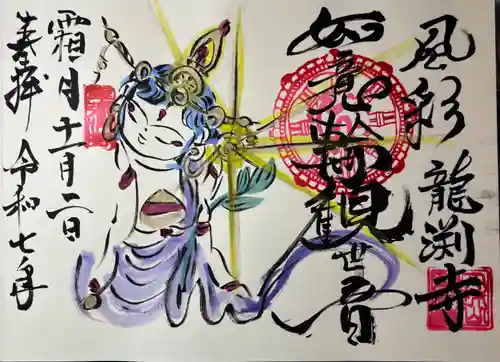 風彩 龍渕寺
如意輪觀世音
霜月十一月二日
奉拝 令和七年